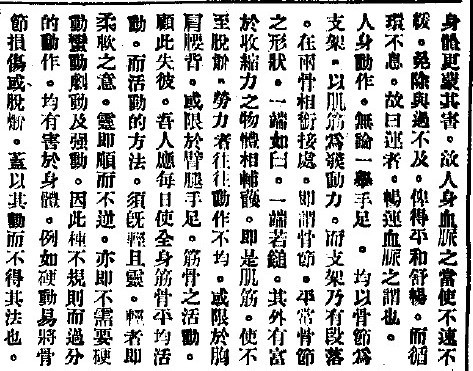 身體更蒙其害。故人身血脈之當使不速不
緩。免除與過不及。俾得平和舒暢。而循
環不息。故曰運者。暢運血脈之謂也。
人身動作。無論一舉手足。均以骨節爲
支架。以肌筋爲發動力。而支架乃有段落
。在兩骨相銜接處。即謂骨節。平常骨節
之形狀。一端如臼。一端若鎚。其外有富
於收縮力之物體相輔護。即是肌筋。使不
至脫骱。勞力者往往動作不均。或限於胸
肩腰背。或限於臂腿手足。筋骨之活動。
顧此失彼。吾人應每日使全身筋骨平均活
動。而活動的方法。須旣輕且靈。輕者即
柔軟之意。靈即順而不逆。亦即不需要硬
動蠻動劇動及強動。因此種不規則而過分
的動作。均有害於身體。例如硬動易將骨
節損傷或脫骱。蓋以其動而不得其法也。